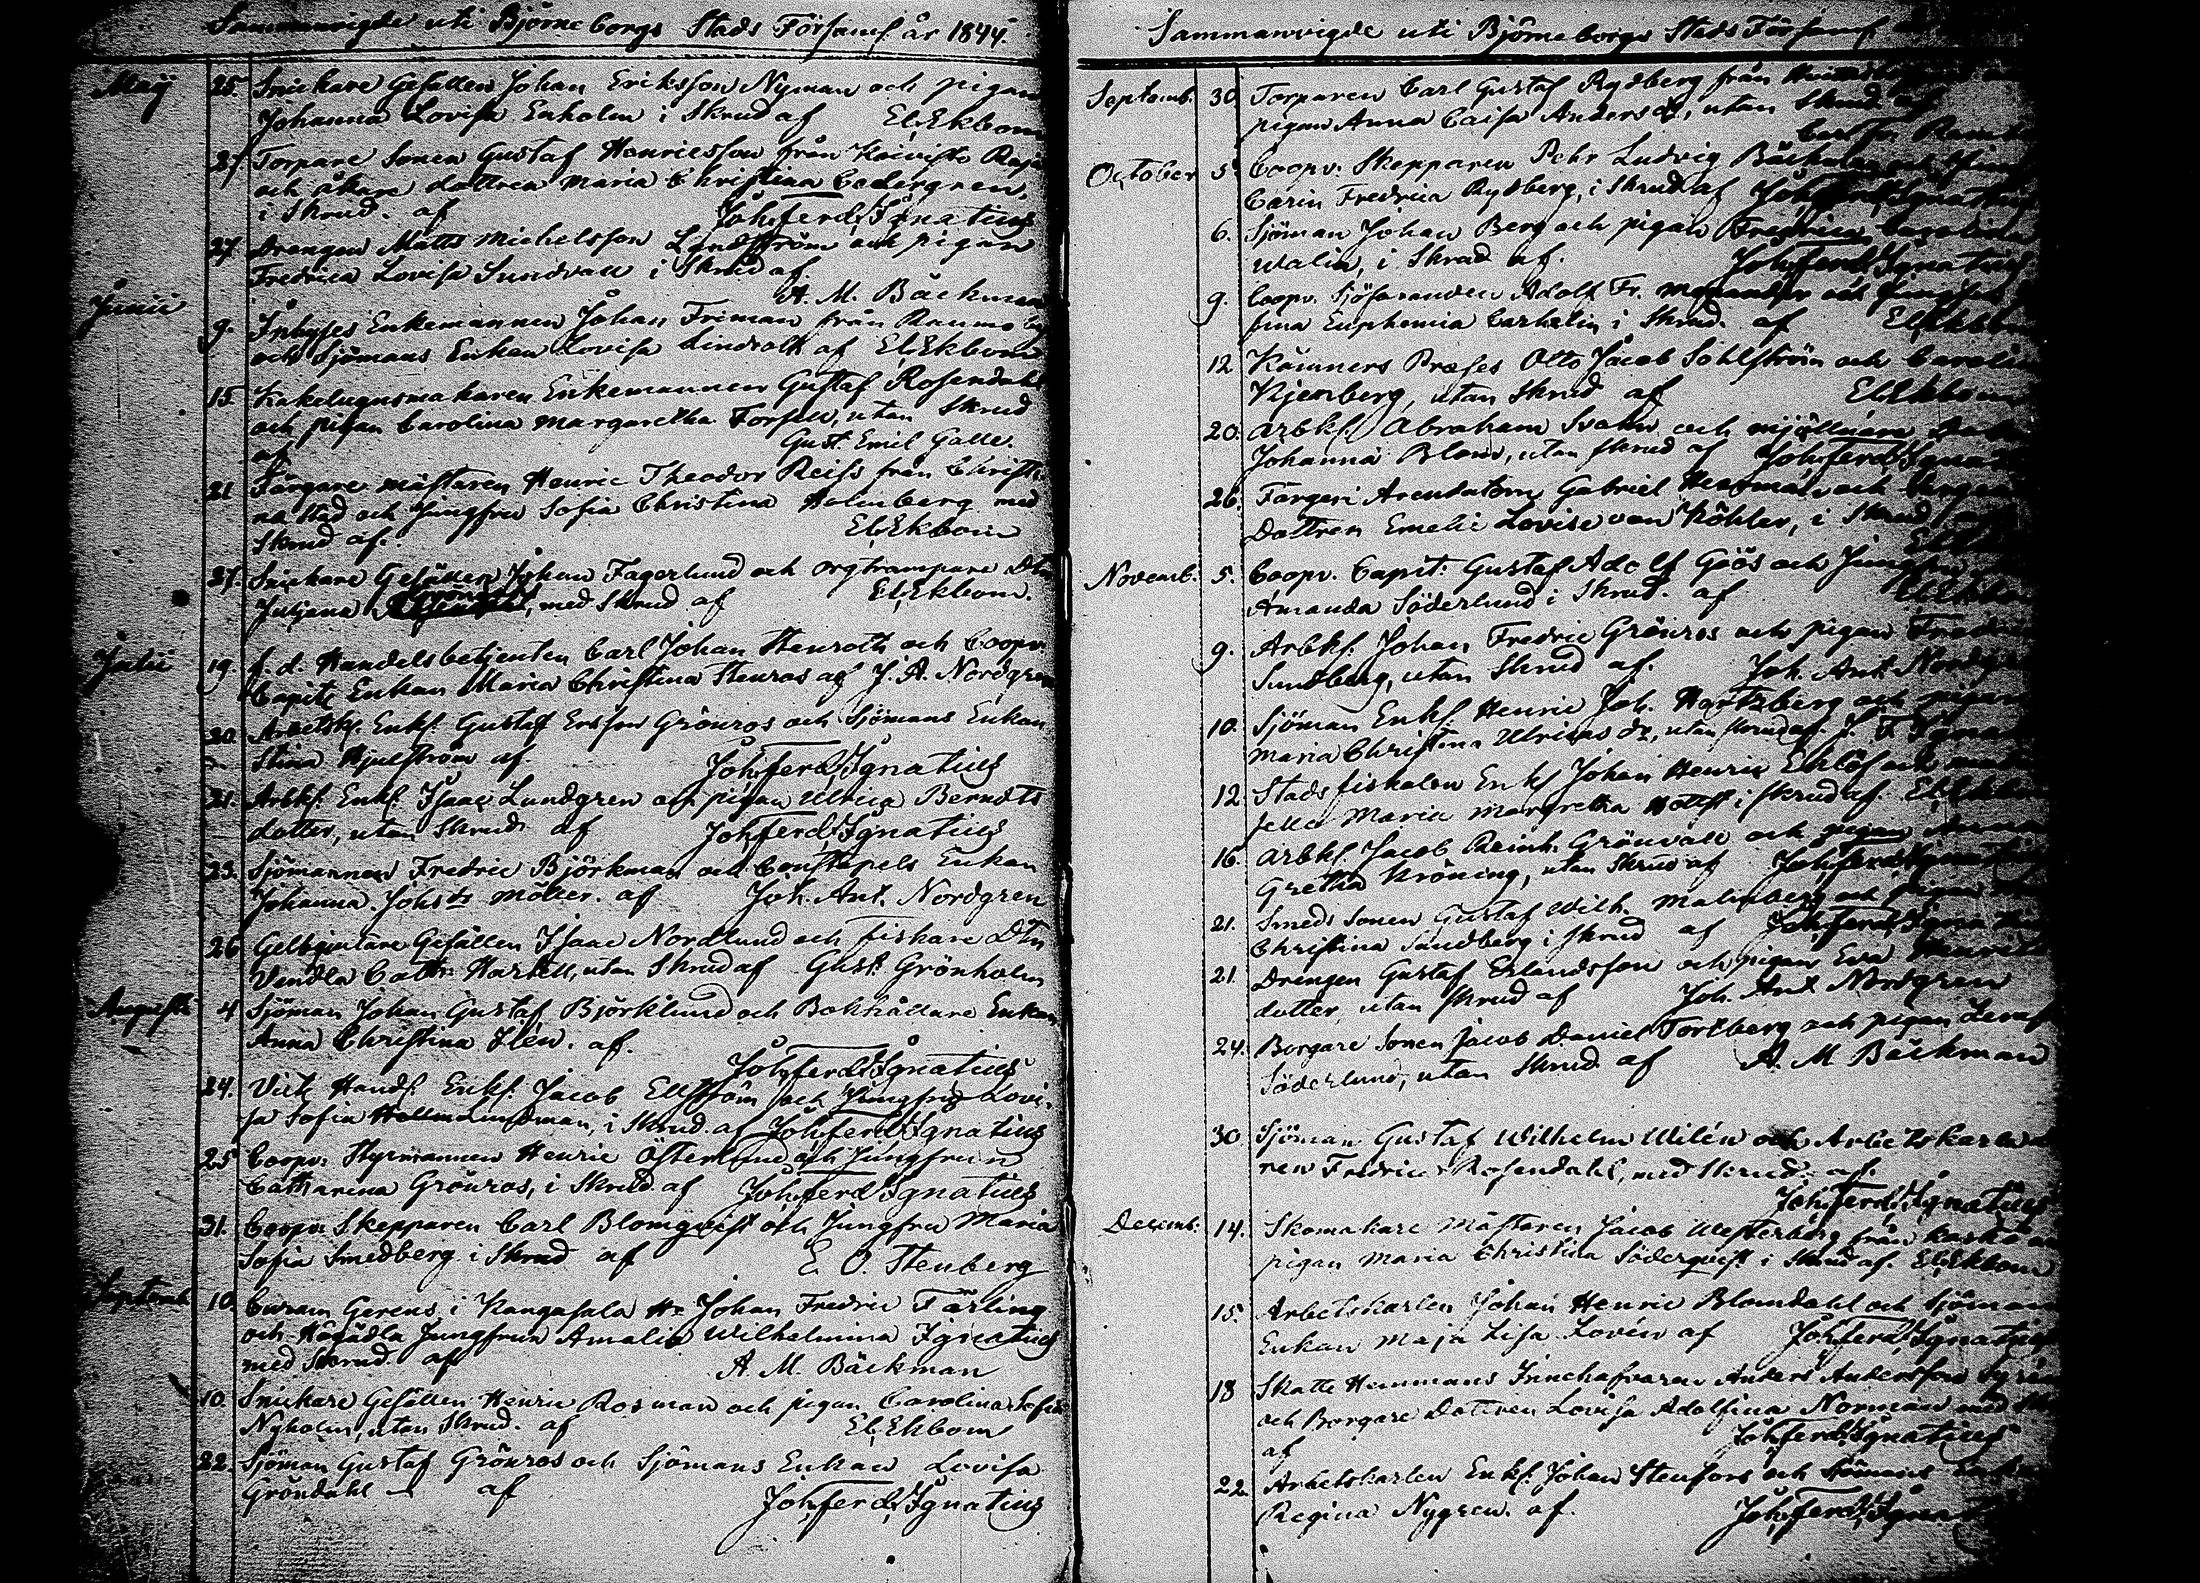 Sammanvigde uti Björneborgs Stads Församl år 1844.
Maij 25. Snickare Gesällen Johan Eriksson Nyman och pigan
Johanna Lovisa Enholm i Skrud af El. Ekbom
27. Torpare Sonen Gustaf Henricsson från Koivisto
och åkare dottren Maria Christina Cedergren,
i Skrud. af Joh. Ferd. Ignatius
27 Drengen Matts Michelsson Landström och pigan
Fredrica Lovisa Sundvall i Skrud af.
A. M. Bäckman
Junii 9. Inhyses Enkemannen Johan Friman från Raumo
och Sjömans Enkan Lovisa Lindroth af El. Ekbom
15. Kakelugnsmakaren Enkemannen Gustaf Rosendahl
och pigan Carolina Margaretha Forssell, utan Skrud
af Gust. Emil Galle.
21 Färgare mästaren Henric Theodor Reiss från Christi-
na Stad och Jungfru Sofia Christina Holmberg med
Skrud af. El. Ekbom
27. Snickare Gesällen Johan Fagerlund och orgtrampare Dtn
Juliana, med Skrud af El. Ekbom.
Julii 19. f. d. Handelsbetjenten Carl Johan Stenroth och Coopv.
Capit. Enkan Maria Christina Stenros af J. A. Nordgren
20. Arbetsk. Enkl. Gustaf Ersson Grönros och Sjömans Enkan
Stina Hjulström af. Joh. Ferd. Ignatius
21. Arbk. Enkl. Isaac Lundgren och pigan Ulrica Berndts
dotter, utan Skrud af Joh. Ferd. Ignatius
23. Sjömannen Fredric Björkman och Constapels Enkan
Johanna Johsdr Möller. af Joh. Ant. Nordgren
26 Gelbgjutare Gesällen Isaac Nordlund och fiskare Dtn
Vendla Cath. Hartell, utan Skrud af Gust. Grönholm
Augusti 4 Sjöman Johan Gustaf Björklund och Bokhållare Enkan
Anna Christina Flén. af.
Joh. Ferd. Ignatius
24. Vict. Handl. Enkl. Jacob Ellström och Jungfru Lovi-
sa Sofia, i Skrud. af Joh. Ferd. Ignatius
25 Coopv. Styrmannen Henric Österlund och Jungfrun
Catharina Grönros, i Skrud. af Joh. Ferd. Ignatius
31. Coopv. Skepparen Carl Blomqvist och Jungfru Maria
Sofia Smedberg i Skrud af E. O. Stenberg
Septemb. 10. Curam Gerens i Kangasala Hr Johan Fredric Färling
och Högädla Jungfrun Amalia Wilhelmina Ignatius
med Skrud. af A. M. Bäckman
10. Snickare Gesällen Henric Rosman och pigan Carolina Sofia
Nyholm, utan Skrud. af El. Ekbom
22. Sjöman Gustaf Grönros och Sjömans Enkan Lovisa
Gröndahl af Joh. Ferd. Ignatius
Sammanvigde uti Björneborgs Stads Församl
Septemb. 30. Torparen Carl Gustaf Rydberg från
pigan Anna Caisa Andersdr, utan Skrud af
October 5. Coopv. Skepparen Pehr Ludvig Bäckman och
Carin Fredrica Rydberg, i Skrud af Joh. Ferd. Ignatius
6. Sjöman Johan Berg och pigan Fredrica Carolina
Walin, i Skrud af. Joh. Ferd. Ignatius
9. Coopv. Sjöfaranden Adolf Fr. och Jungfru
fina Euphemia i Skrud. af El. Ekbom
12 Kämners Præses Otto Jacob Sohlström och Carolin
Kjemberg, utan Skrud af El. Ekbom
20. Arbk. Abraham Svahn och mjölnare
Johanna Blom, utan skrud af Joh. Ferd. Igna
26. Färgeri Arendatorn Gabriel och
Dottren Emelie Lovise von Köhler, i Skrud
Novemb. 5. Coopv. Capit. Gustaf Adolf Göös och Jungfru
Amanda Söderlund i Skrud. af El. Ekbom
9. Arbk. Johan Fredric Grönros och pigan Fredrica
Sundberg, utan Skrud af. Joh. Ant. Nordgren
10. Sjöman Enkl. Henric Joh. Hartzberg och pigan
Maria Christina Ulricas dr, utan skrud af. J. F. Ignat
12. Stads fiskalen Enkl Johan Henric Ekelöf och mam
selle Maria Margretha i skrud af. El. Ekbom
16. Arbk. Jacob Reinh. Grönvall och pigan
Gretha Kröning, utan Skrud af Joh. Ferd. Ignatius
21. Smeds Sonen Gustaf Wilh. Malmberg och pigan
Christina Sandberg i skrud af Joh. Ferd. Ignatius
21. Drengen Gustaf Erlandsson och pigan Eva
dotter, utan skrud af Joh. Ant Nordgren
24. Borgare Sonen Jacob Daniel Forsberg och pigan
Söderlund, utan Skrud af A. M Bäckman
30. Sjöman Gustaf Wilhelm Wilén och Arbetskarls
ren Fredrica Rosendahl, med Skrud. af.
Joh. Ferd. Ignatius
Decemb. 14. Skomakare Mästaren Jacob Westerberg från
pigan Maria Christina Söderqvist i Skrud af. El. Ekbom
15. Arbetskarlen Johan Henric Blomdahl och Sjömans
Enkan Maja Lisa Lovén af Joh. Ferd. Ignatius
18 Skatte Hemmans Innehafvaren Anders Andersson
och Borgare Dottren Lovisa Adolfina Norman med
af Joh. Ferd. Ignatius
22. Arbetskarlen Enkl. Johan Stenfors och Sjömans
Regina Nygren. af. Joh. Ferd. Ignat